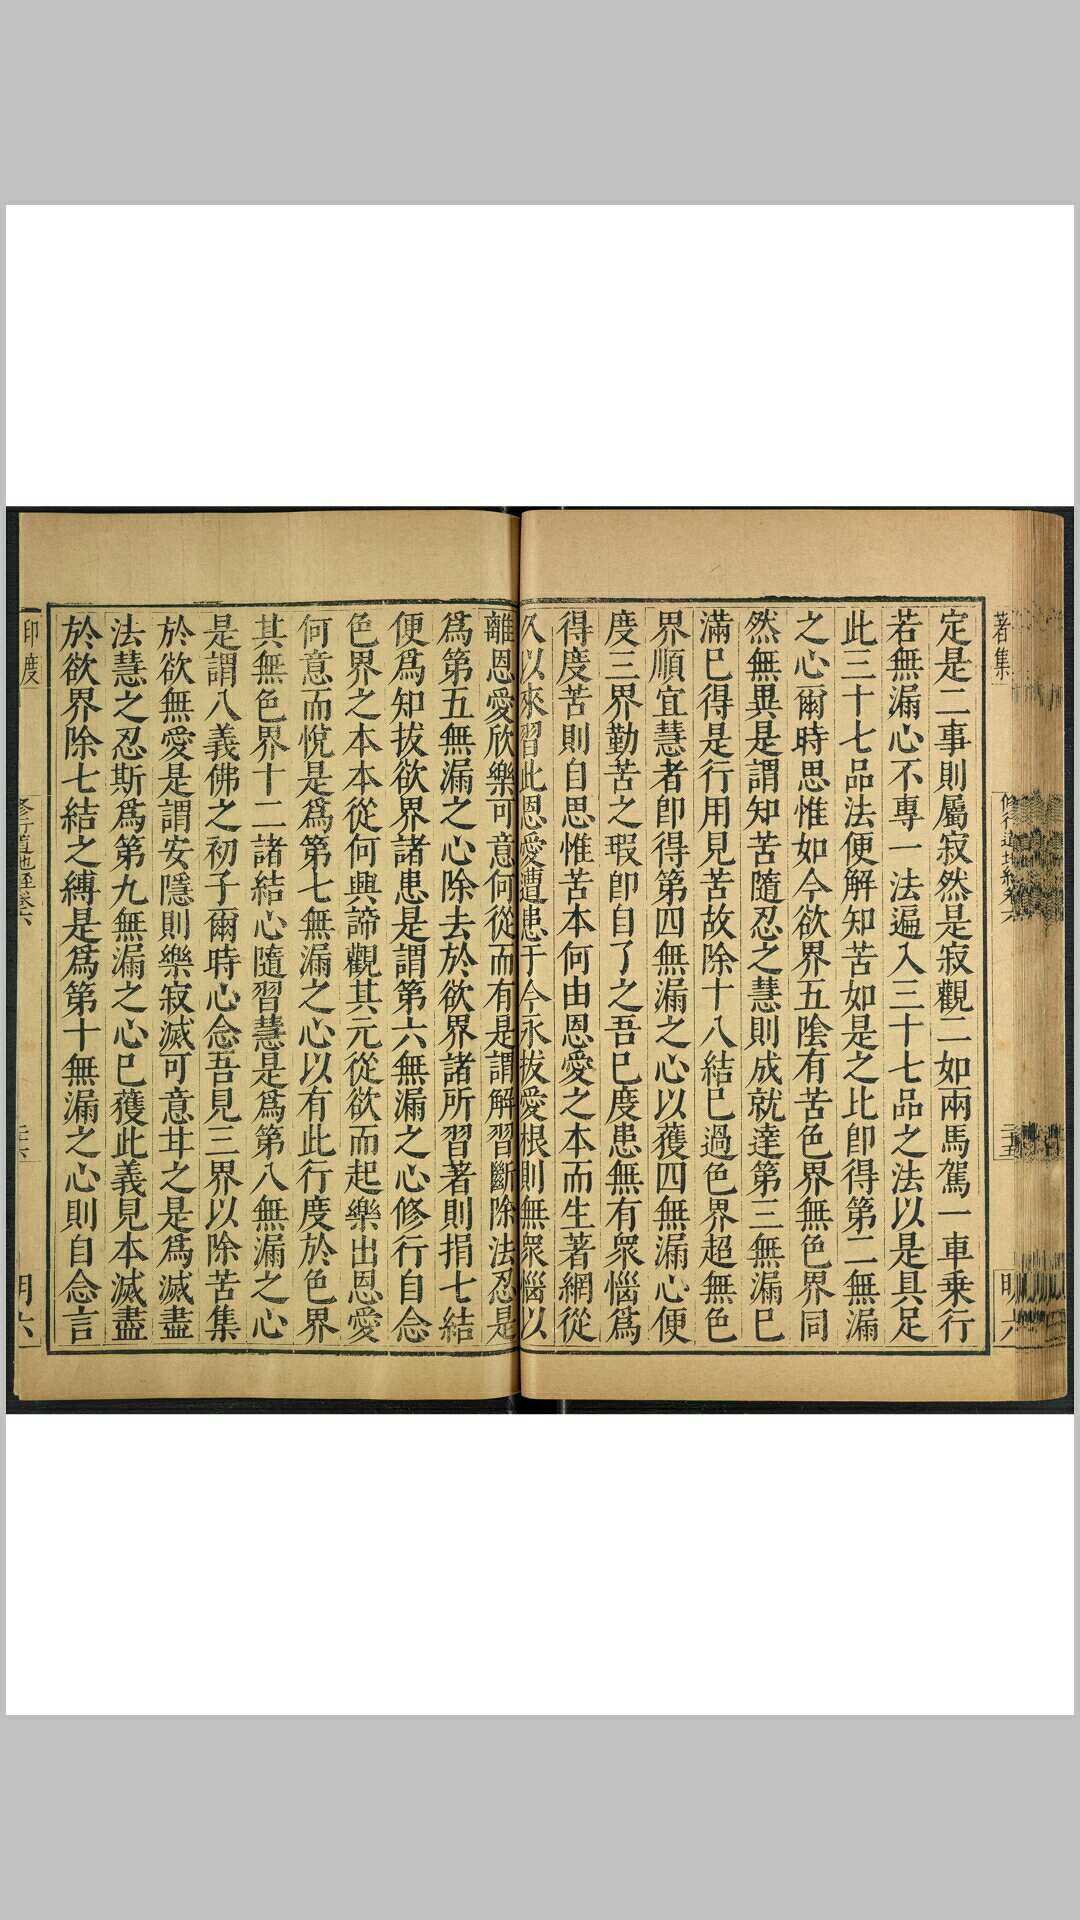 著集
修行道地經卷六
二十五
明六
定是二事則屬寂然是寂觀二如兩馬駕一車乘行
若無漏心不專一法遍入三十七品之法以是具足
此三十七品法便解知苦如是之比卽得第二無漏
之心爾時思惟如今欲界五陰有苦色界無色界同
然無異是謂知苦隨忍之慧則成就達第三無漏已
滿已得是行用見苦故除十八結已過色界超無色
界順宜慧者卽得第四無漏之心以獲四無漏心便
度三界勤苦之瑕卽自了之吾已度患無有衆惱爲
得度苦則自思惟苦本何由恩愛之本而生著網從
久以來習此恩愛遭患于今永拔愛根則無衆惱以
離恩愛欣樂可意何從而有是謂解習斷除法忍是
爲第五無漏之心除去於欲界諸所習著則捐七結
便爲知拔欲界諸患是謂第六無漏之心修行自念
色界之本本從何興諦觀其元從欲而起樂出恩愛
何意而悅是爲第七無漏之心以有此行度於色界
其無色界十二諸結心隨習慧是爲第八無漏之心
是謂八義佛之初子爾時心念吾見三界以除苦集
於欲無愛是謂安隱則樂寂滅可意甘之是爲滅盡
法慧之忍斯爲第九無漏之心已獲此義見本滅盡
於欲界除七結之縛是爲第十無漏之心則自念言
印度
修行道地經卷六
二十六
明六